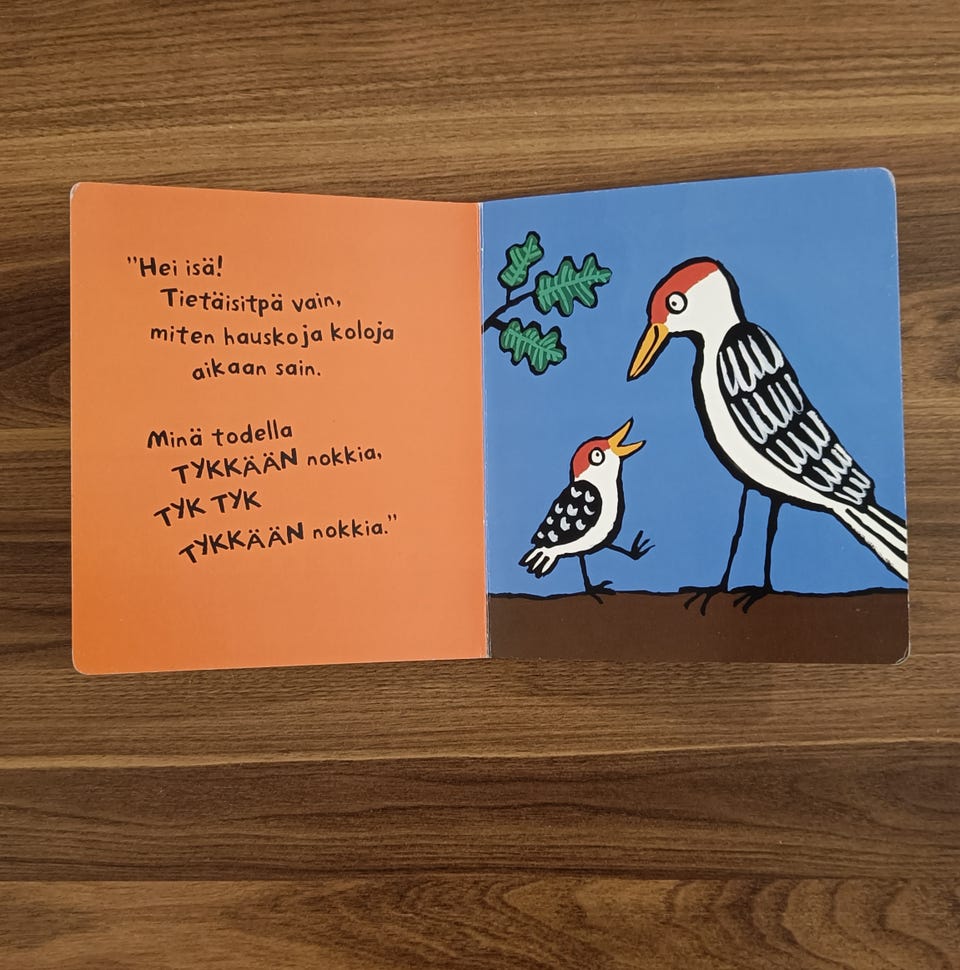 ”Hei isä!
Tietäisitpä vain,
miten hauskoja koloja
aikaan sain.
Minä todella
TYKKÄÄN nokkia,
TYK TYK
TYKKÄÄN nokkia.”